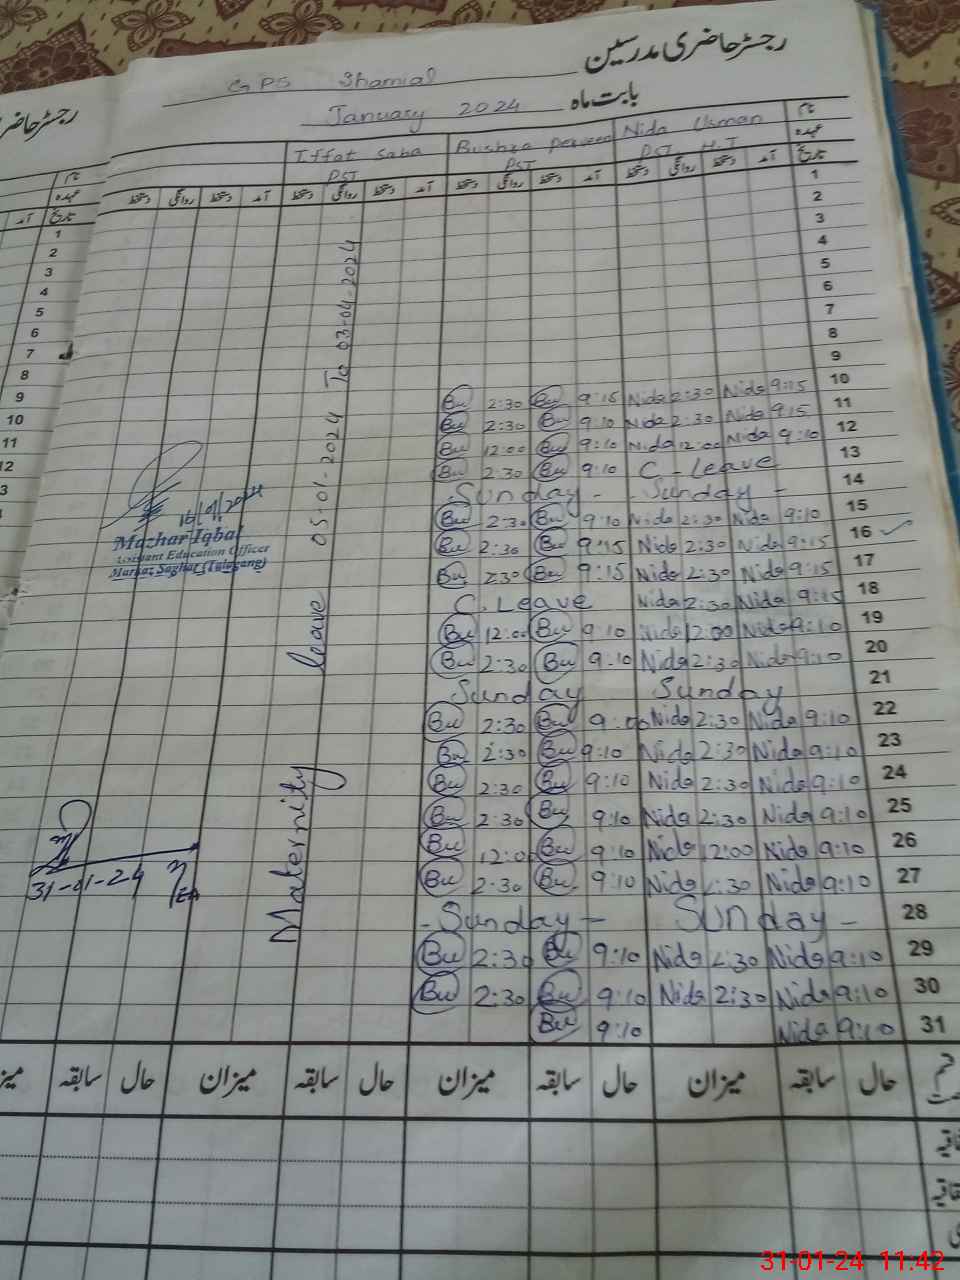 رجسٹر حاضری مدرسین
GPS Shamial
بابت ماہ January 2024
نام Nida Usman Bushra Parveen Iffat Saba
عہدہ PST H.T PST PST
تاریخ آمد دستخط روانگی دستخط آمد دستخط روانگی دستخط آمد دستخط روانگی دستخط آمد دستخط روانگی دستخط
1
2
3
4
5
6
7
8
9
10 9:15 Nida 2:30 Nida 9:15 Bu 2:30 Bu
11 9:15 Nida 2:30 Nida 9:10 Bu 2:30 Bu
12 9:10 Nida 12:00 Nida 9:10 Bu 12:00 Bu
13 C-Leave 9:10 Bu 2:30 Bu
14 -Sunday- -Sunday-
15 9:10 Nida 2:30 Nida 9:10 Bu 2:30 Bu
16 9:15 Nida 2:30 Nida 9:15 Bu 2:30 Bu
17 9:15 Nida 2:30 Nida 9:15 Bu 2:30 Bu
18 9:15 Nida 2:30 Nida C. Leave
19 9:10 Nida 12:00 Nida 9:10 Bu 12:00 Bu
20 9:10 Nida 2:30 Nida 9:10 Bu 2:30 Bu
21 Sunday Sunday
22 9:10 Nida 2:30 Nida 9:00 Bu 2:30 Bu
23 9:10 Nida 2:30 Nida 9:10 Bu 2:30 Bu
24 9:10 Nida 2:30 Nida 9:10 Bu 2:30 Bu
25 9:10 Nida 2:30 Nida 9:10 Bu 2:30 Bu
26 9:10 Nida 12:00 Nida 9:10 Bu 12:0 Bu
27 9:10 Nida 2:30 Nida 9:10 Bu 2:30 Bu
28 SUNday- -Sunday-
29 9:10 Nida 2:30 Nida 9:10 Bu 2:30 Bu
30 9:10 Nida 2:30 Nida 9:10 Bu 2:30 Bu
31 9:10 Nida 9:10 Bu
Maternity leave 05-01-2024 To 03-04-2024
16/01/2024
Mazhar Iqbal
Assistant Education Officer
Markaz Saghar (Talagang)
31-01-24
MEA
حال سابقہ میزان حال سابقہ میزان حال سابقہ میزان حال سابقہ
رجسٹر حاضری
نام
عہدہ
تاریخ آمد
1
2
3
4
5
6
7
8
9
10
11
12
31-01-24 11:42